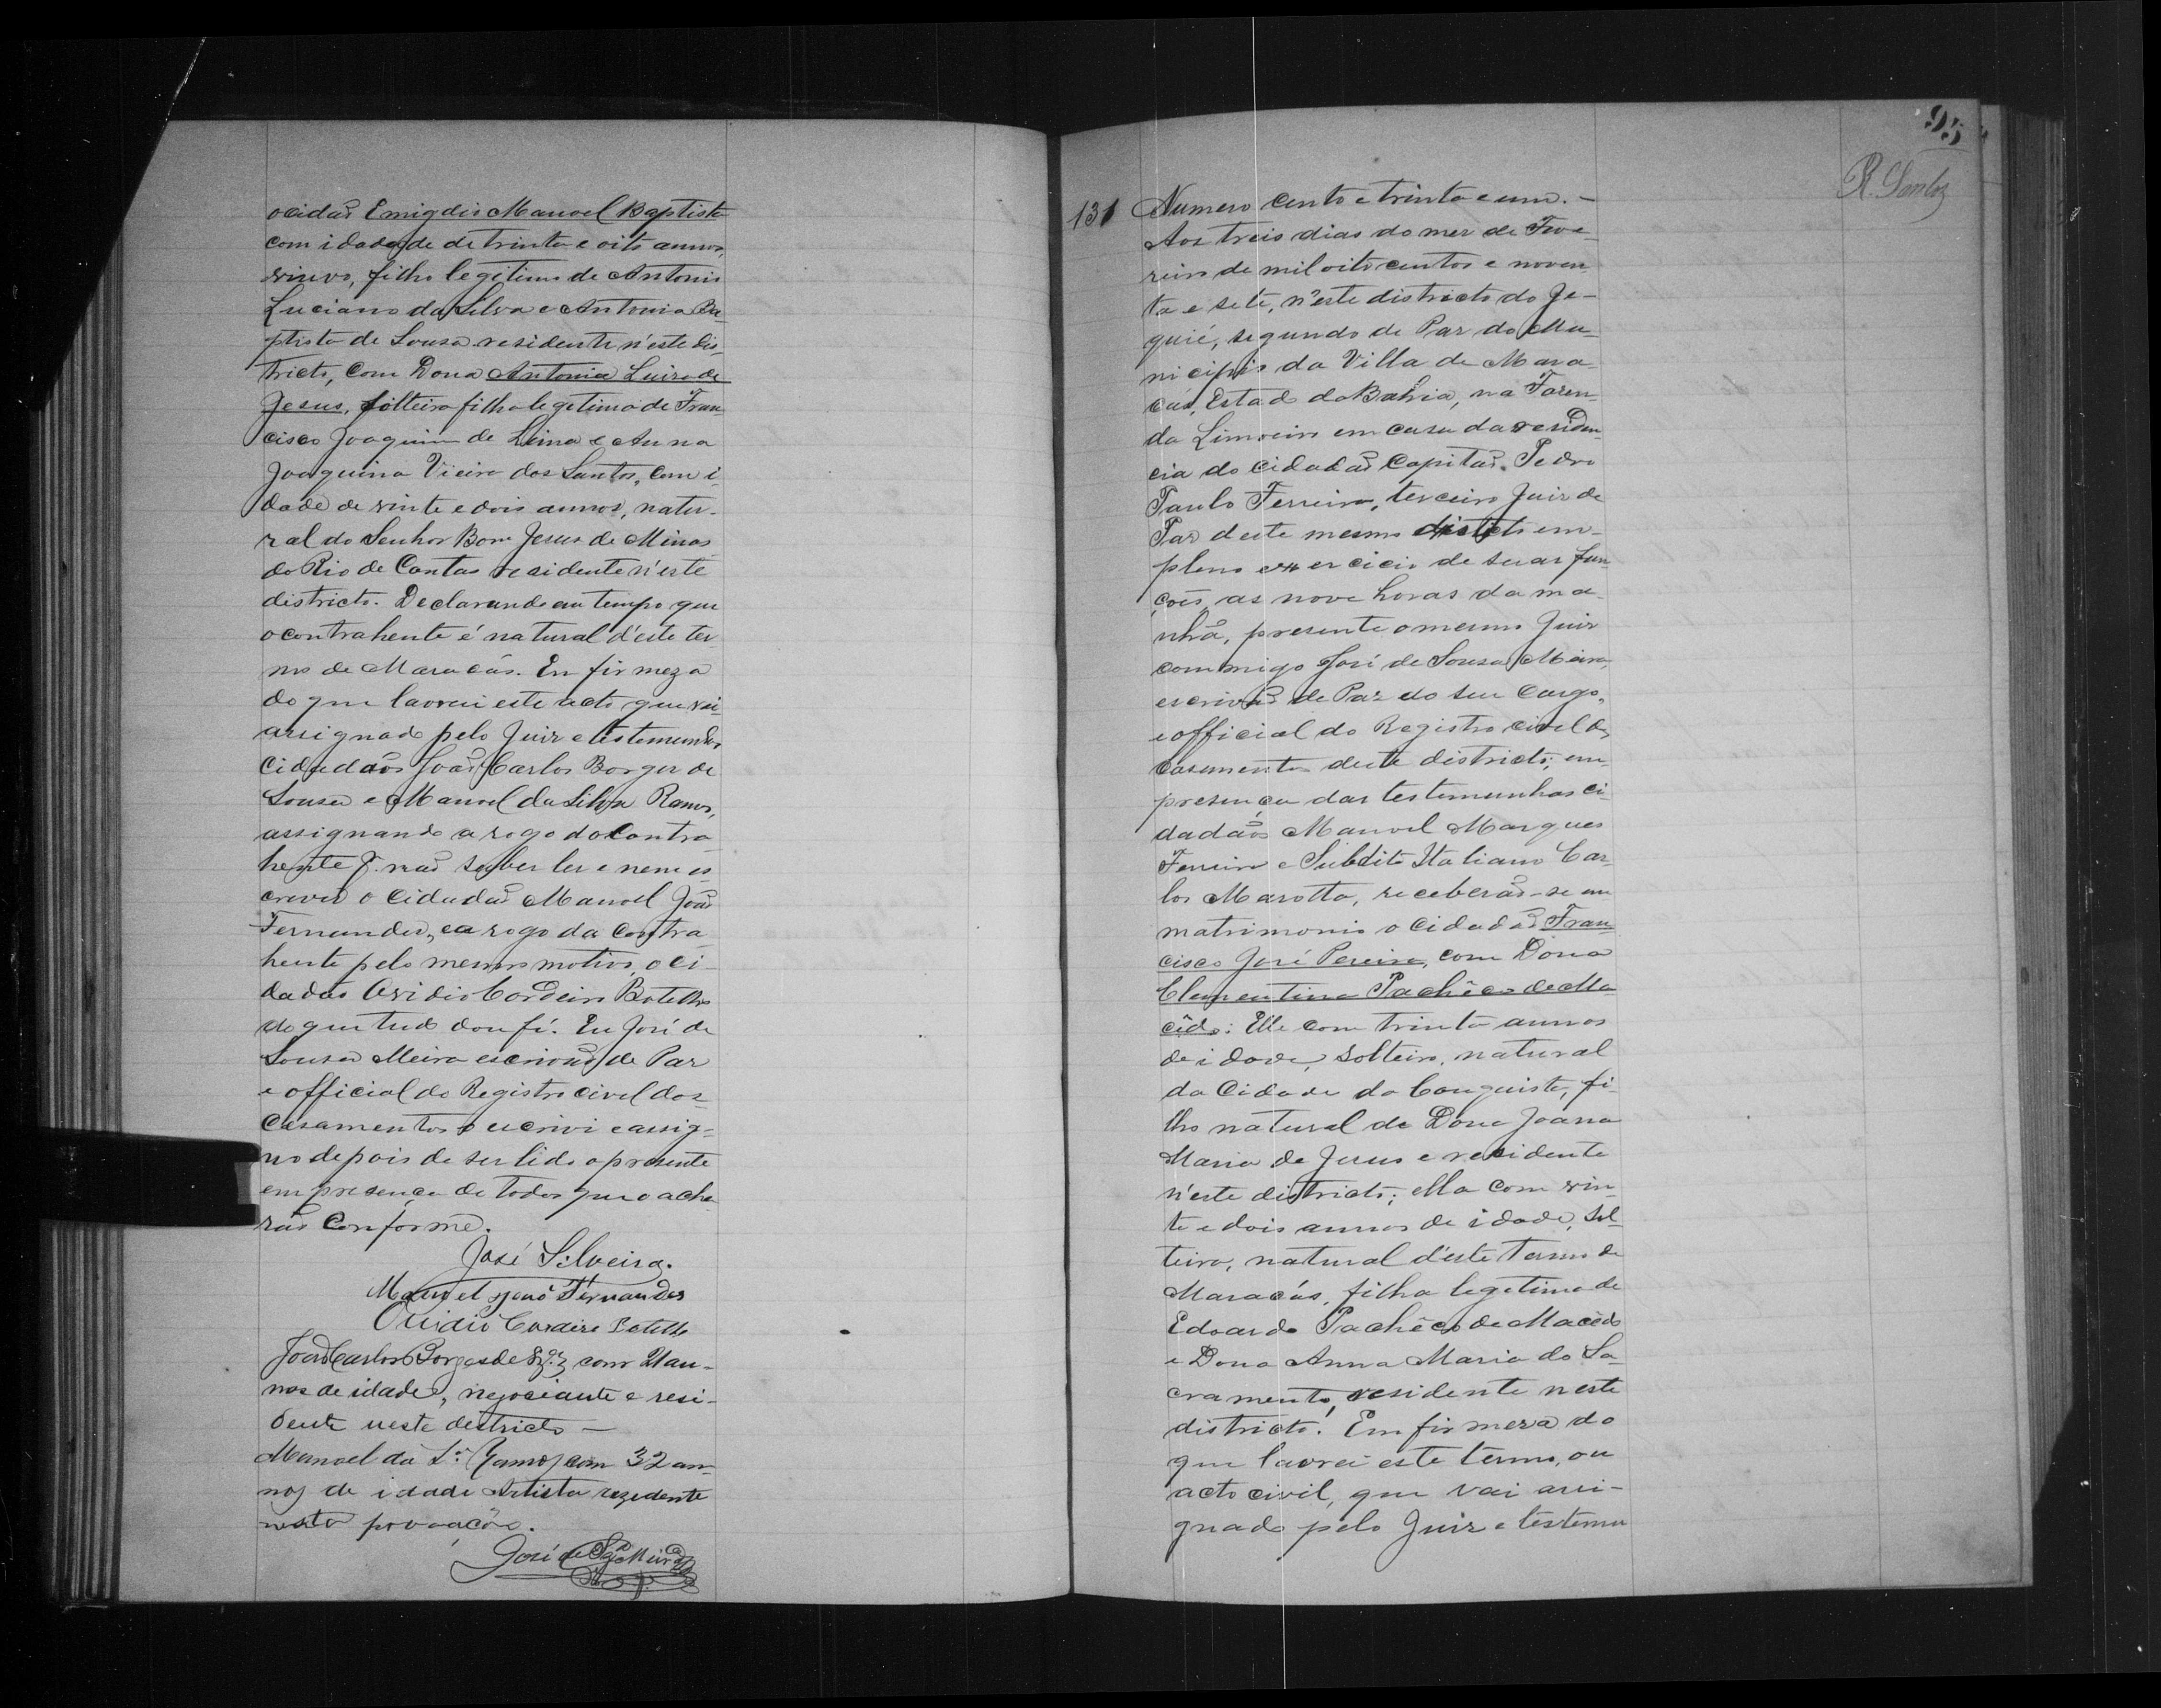 o cidadaõ Emigdio Manoel Baptista
com idade de de trinta e oito annos,
viuvo, filho legitimo de Antonio
Luciano da Silva e Antonia Ba-
ptista de Sousa residente n'este dis-
tricto, com Dona Antonia Luiza de
Jesus, solteira filha legitima de Fran
cisco Joaquim de Lima e Anna
Joaquina Vieira dos Santos, com i-
dade de vinte e dois annos, natu-
ral do Senhor Bom Jesus de Minas
do Rio de Contas residente n'este
districto. Declarando em tempo que
o contrahente é natural d'este ter-
mo de Maracás. Em firmeza
do que lavrei este acto que vai
assignado pelo Juiz e testemunhas
Cidadaõs Joaõ Carlos Borges de
Sousa e Manoel da Silva Ramos,
assignando a rogo do Contra-
hente p. naõ saber ler e nem es-
crever o Cidadaõ Manoel João
Fernandes, e a rogo da Contra-
hente pelo mesmo motivo, o ci-
dadaõ Ovidio Cordeiro Botelho
do que tudo dou fé. Eu José de
Sousa Meira escrivaõ de Paz
e official do Registro civel dos
Casamentos o escrivi e assig-
no depois de ser lido o presente
em presença de todos que o acha-
raõ Conforme.
José Silveira.
Manoel João Fernandes
Ovidio Cordeiro Botelho
João Carlos Borges de Sz.ª com
nos de idade, negociante e resi-
dente neste destricto —
Manoel da S.ª Ramos com 32 an-
nos de idade Artista rezedente
nesta povoação.
José de Sz.ª Meira
95
R. Santos
131 Numero cento e trinta e um. —
Aos treis dias do mez de Feve-
reiro de mil oito centos e noven-
ta e sete, n'este districto do Je-
quié, segundo de Paz do Mu-
nicipio da Villa de Mara-
cás, Estado da Bahia, na Fazen-
da Limoeiro em casa da residen-
cia do cidadaõ Capitaõ Pedro
Paulo Ferreira, terceiro Juiz de
Paz deste mesmo districto em
pleno exercicio de suas fun-
ções, as nove horas da ma-
nhã, presente o mesmo Juiz
commigo José de Sousa Meira,
escrivaõ de Paz do seu Cargo,
e official do Registro civel de
Casamentos deste districto; em
presença das testemunhas ci-
dadaõs Manoel Marques
Ferreira e Subdito Italiano Car-
los Marotta, receberaõ-se em
matrimonio o cidadaõ Fran-
cisco José Pereira, com Dona
Clementina Pachêco de Ma-
cêdo: Elle com trinta annos
de idade, solteiro, natural
da Cidade da Conquista, fi-
lho natural de Dona Joana
Maria de Jesus e residente
n'este districto; ella com vin-
te e dois annos de idade, sol-
teira, natural d'este Termo de
Maracás, filha legitima de
Edoardo Pachêco de Macêdo
e Dona Anna Maria do Sa-
cramento, residente neste
districto. Em firmeza do
que lavrei este termo, ou
acto civil, que vai assi-
gnado pelo Juiz e testemu